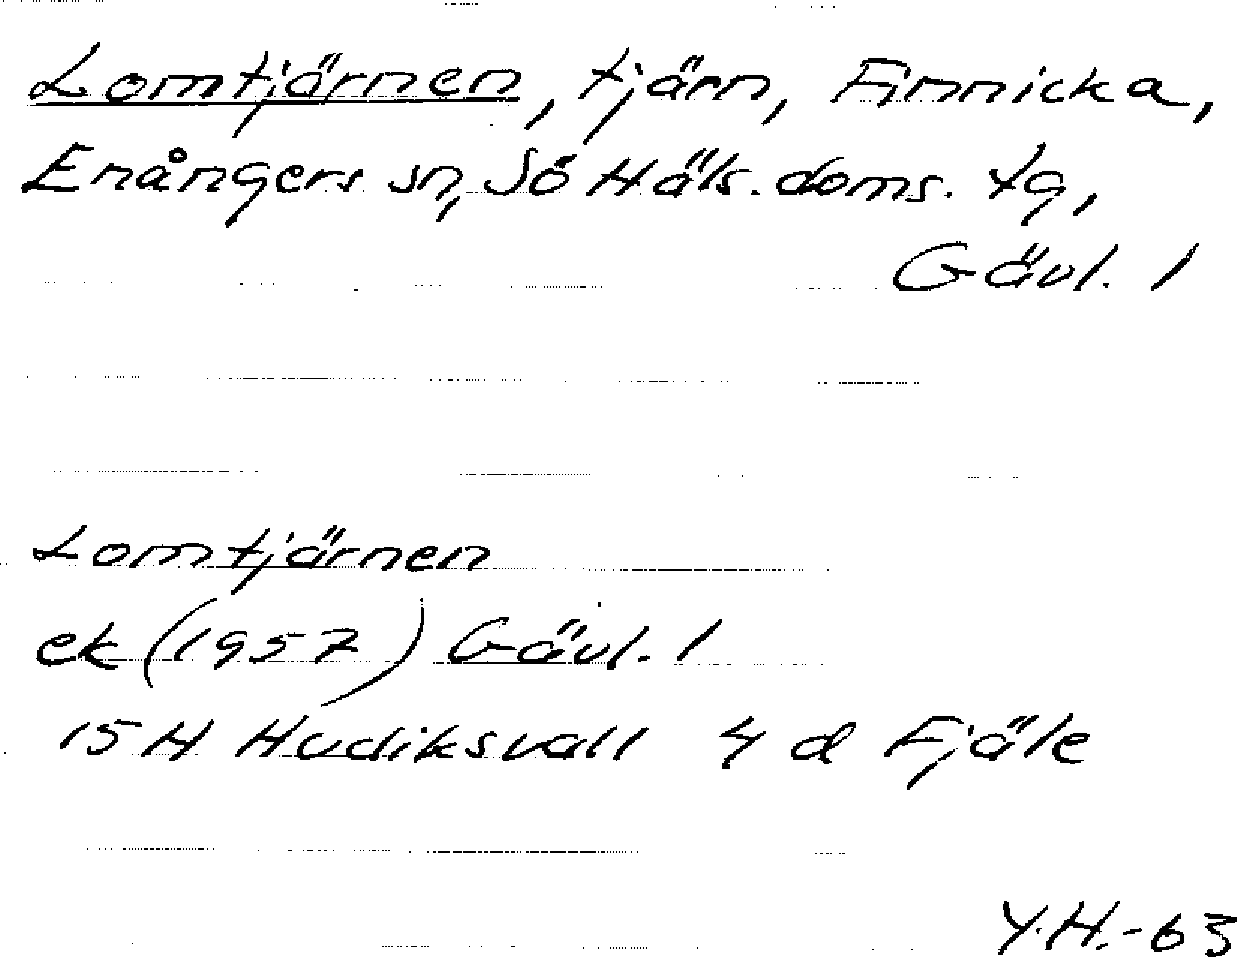 Lomtjärnen, tjärn, Finnicka,
Enångers sn, Sö Häls. doms. tg,
Gävl. l
Lomtjärnen
ek (1957) Gävl. l
15 H Hudiksvall 4 d Fjäle
Y.H.-63